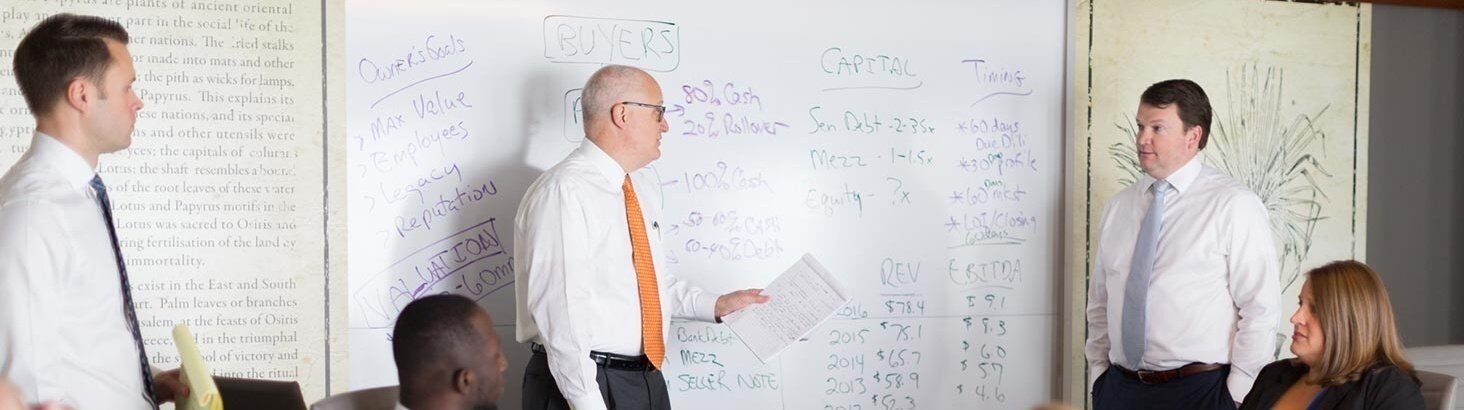 are plants of ancient oriental
play an part in the social life of the
her nations. The dried stalks
or made into mats and other
; the pith as wicks for lamps.
Papyrus. This explains its
ese nations, and its special
ms and other utensils were
yces; the capitals of columns
Lotus: the shaft resembles a bound
of the root leaves of these water
Lotus and Papyrus motifs in the
Lotus was sacred to Osiris and
ring fertilisation of the land
immortality.
exist in the East and South
art. Palm leaves or branches
salem at the feasts of Osiris
d in the triumphal
ool of victory and
into the ritual
Owner's Goals
> Max Value
> Employees
> Legacy
> Reputation
VALUATION
-60mm
BUYERS
→ 80% Cash
20% Rollover
→ 100% Cash
50-60% Cash
50-40% Debt
CAPITAL
Sen. Debt - 2-3.5x
Mezz - 1-1.5x
Equity - ?x
Timing
*60 days
Due Dili
*30 Day profile
*60 Days mkt
*LOI/Closing
60 days
REV EBITDA
2016 $78.4 $9.1
2015 $75.1 $8.3
2014 $65.7 $6.0
2013 $58.9 $5.7
2012 $52.3 $4.6
Bank Debt
MEZZ
SELLER NOTE